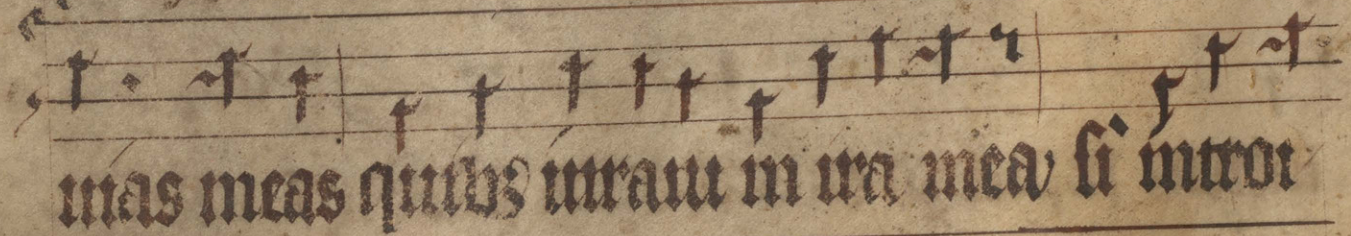 uias meas quibus iuraui in ira mea si introi